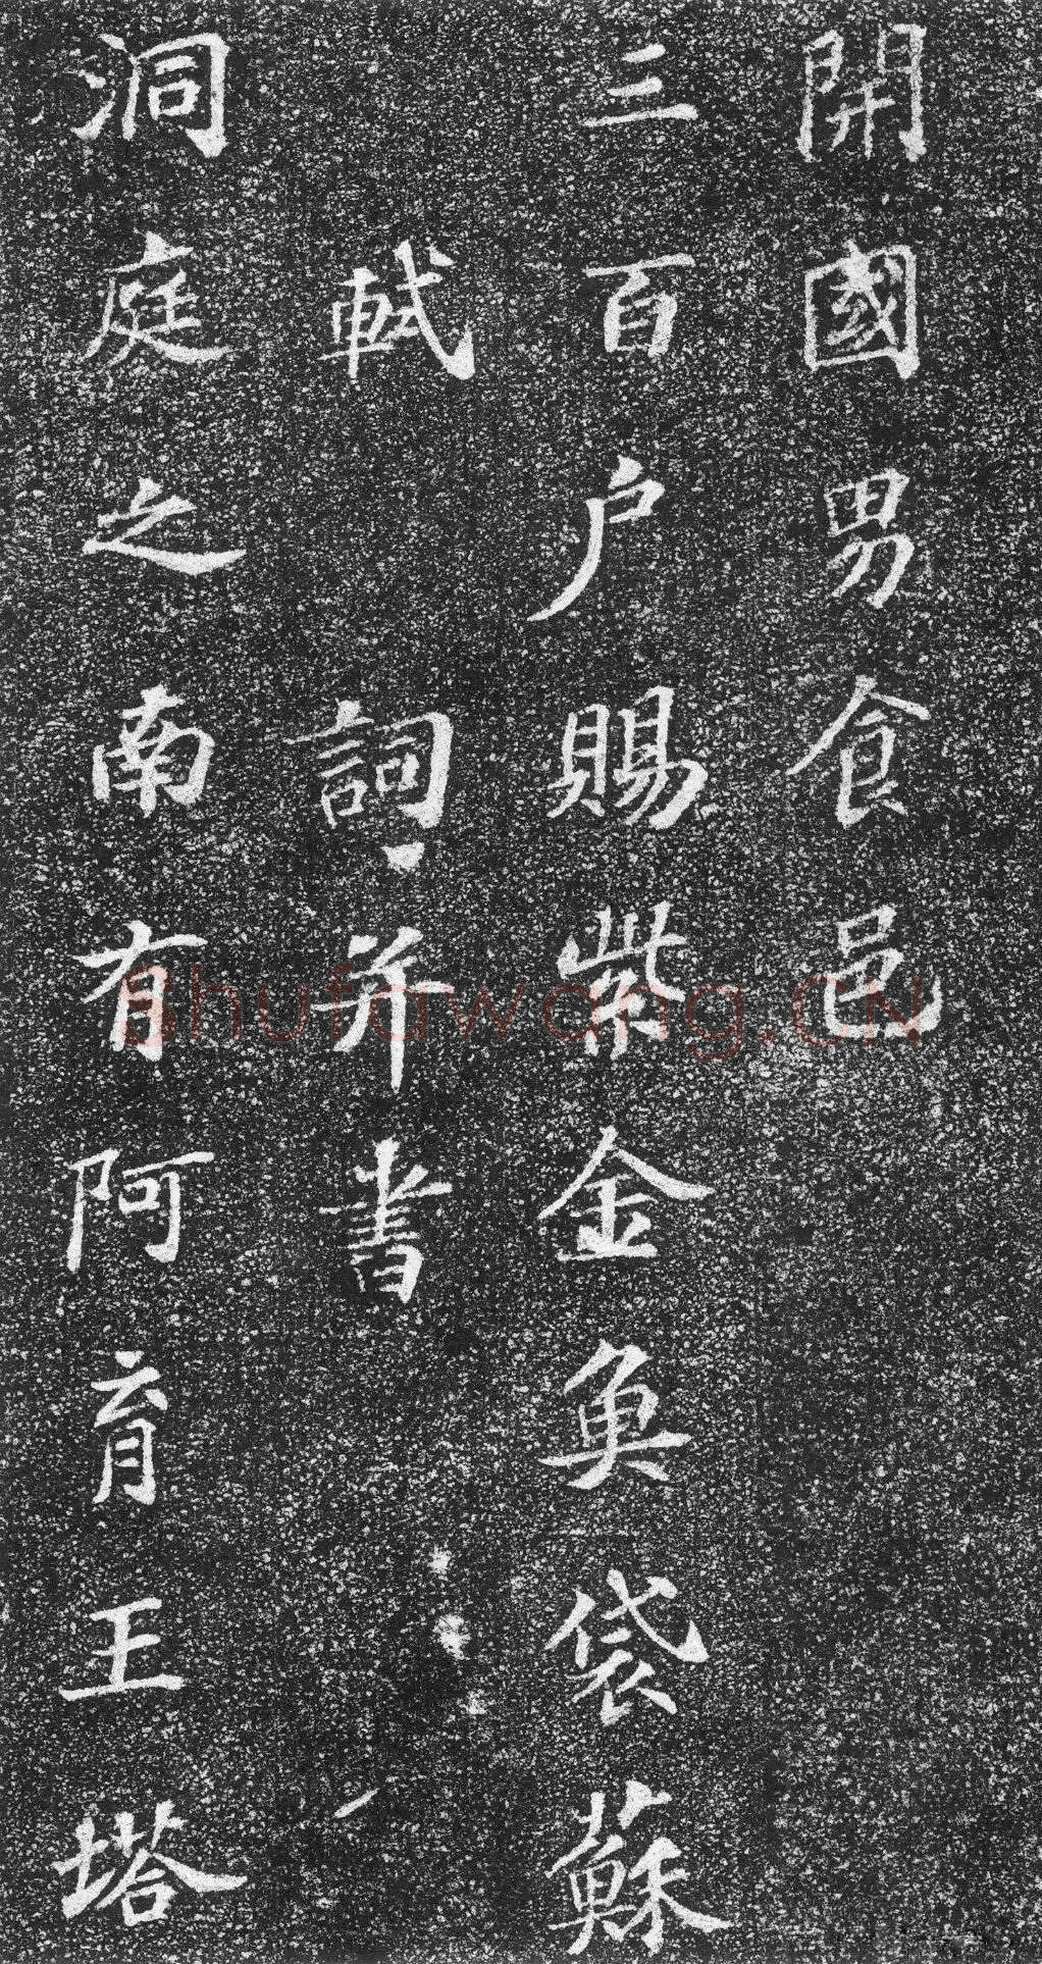 開國男食邑
三百户賜紫金魚袋蘇
軾詞并書
洞庭之南有阿育王塔
Shufawang.CN